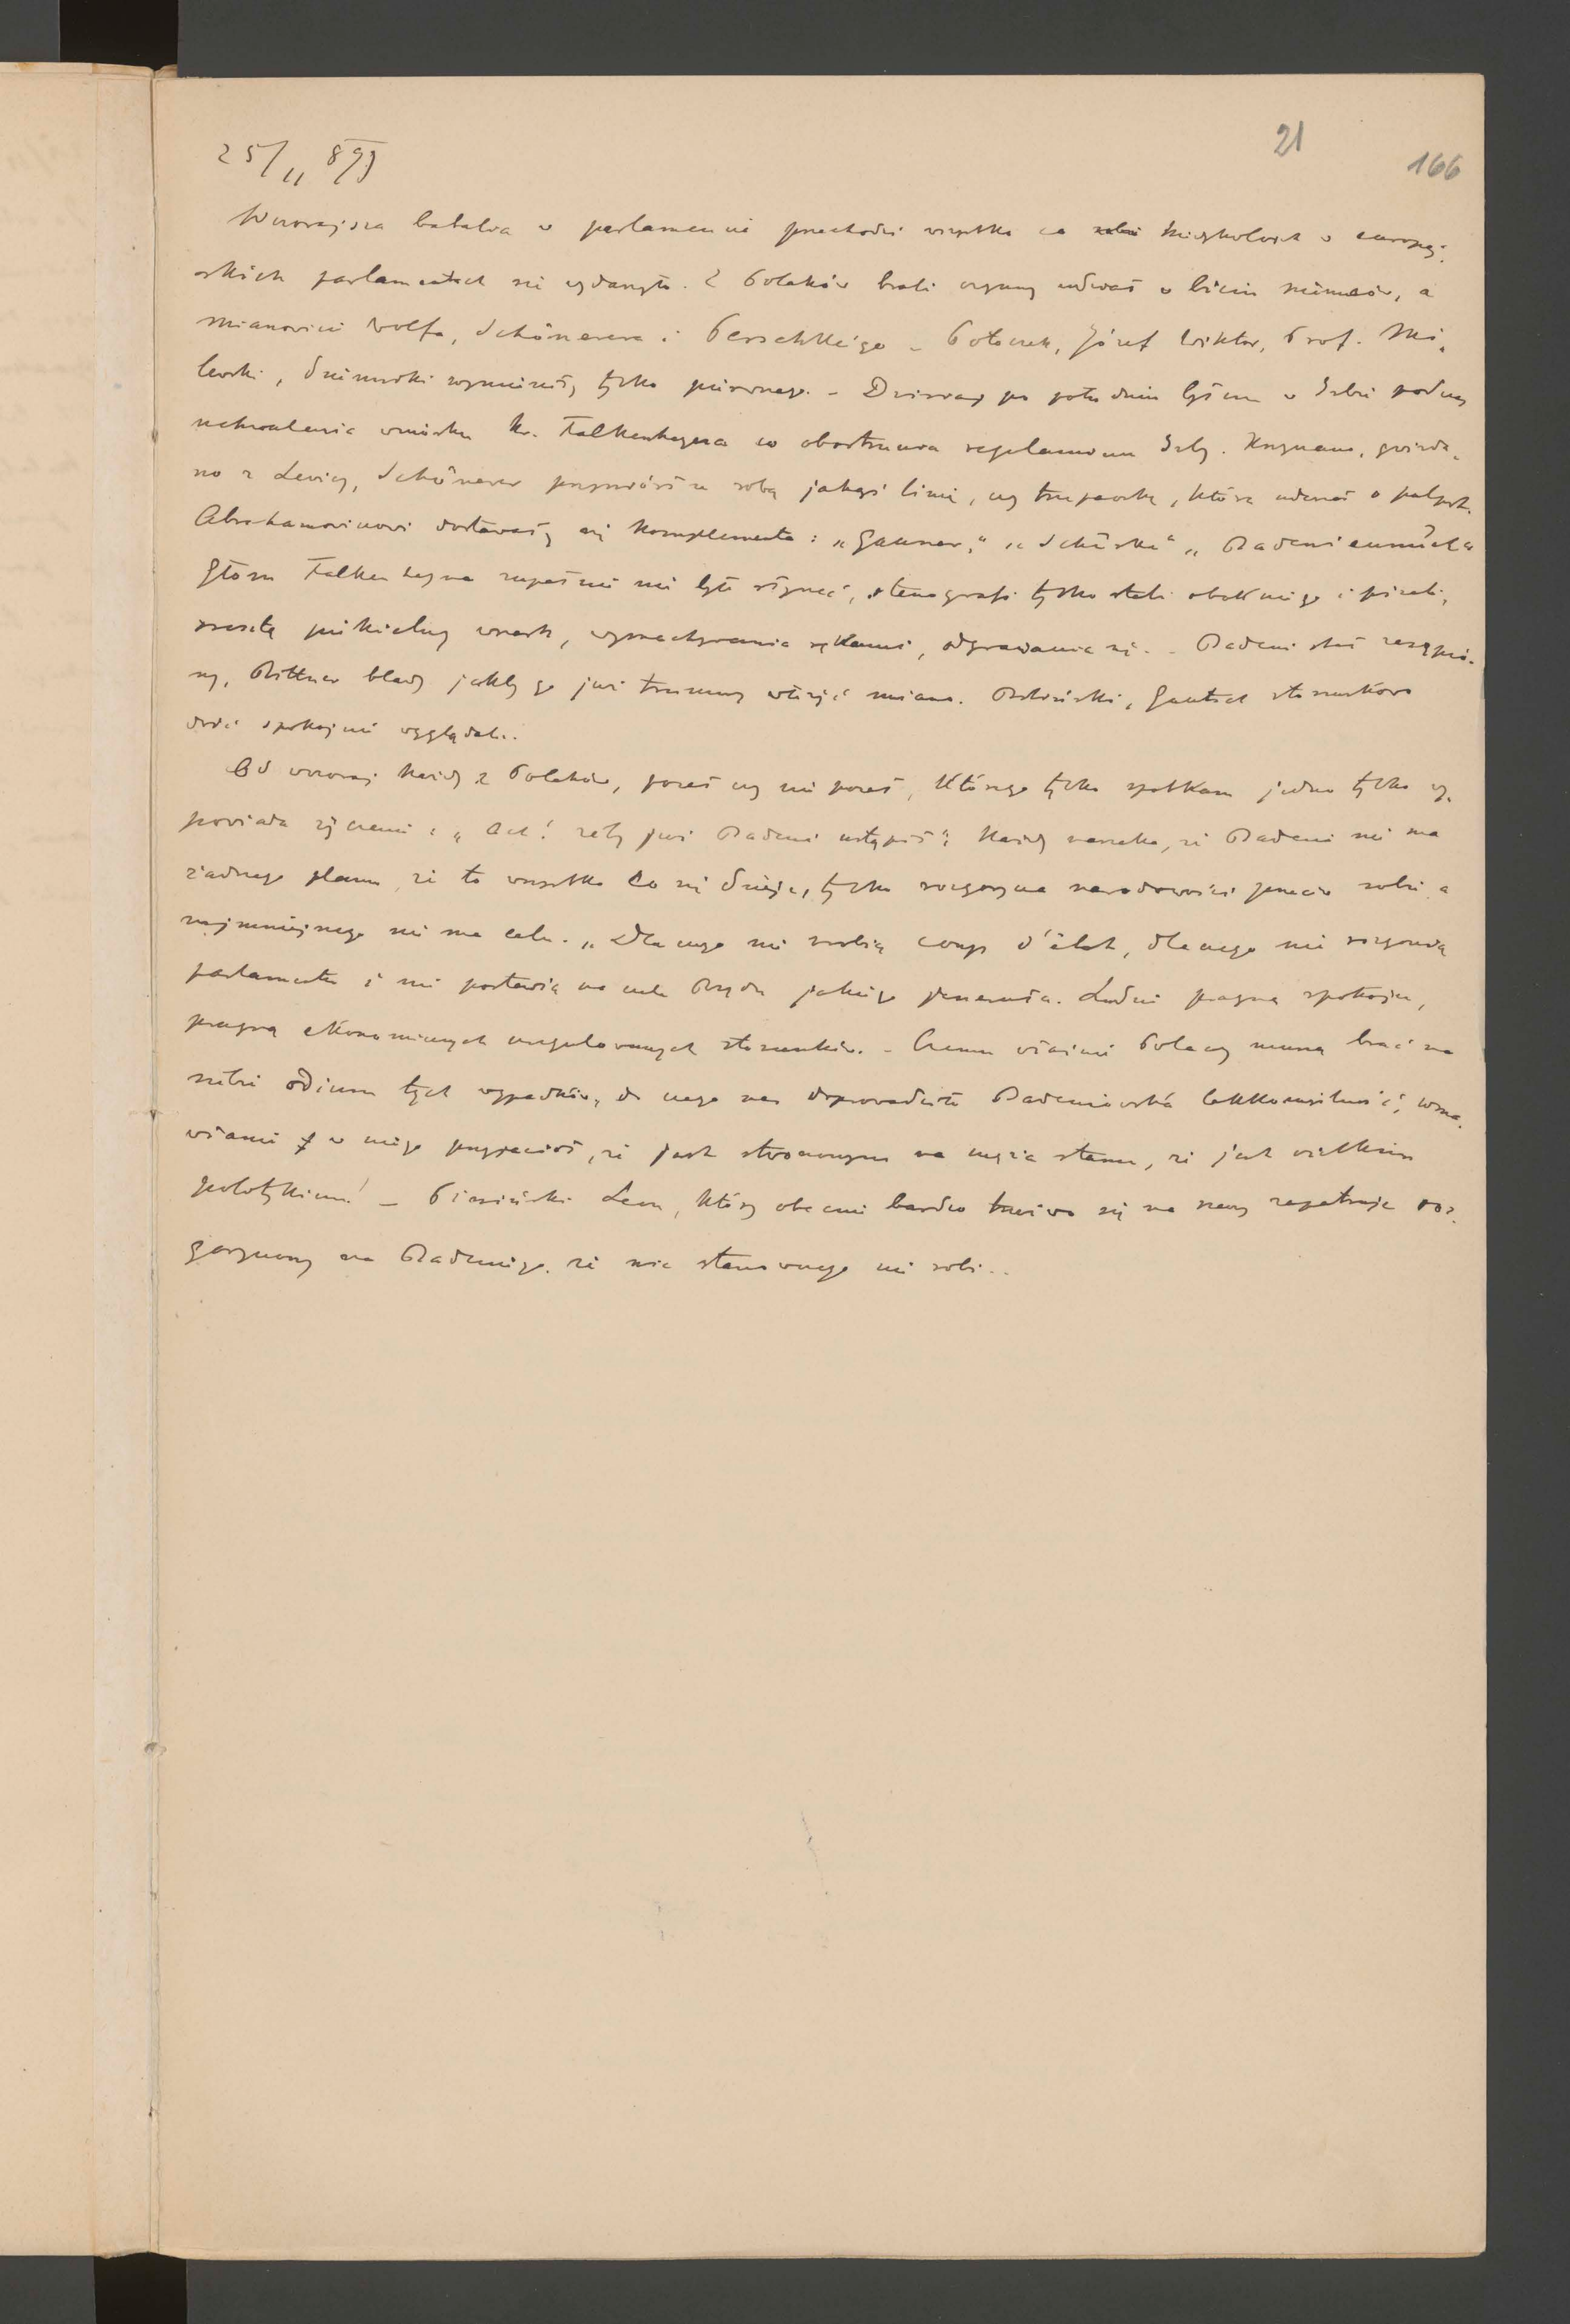 21
166
25/11 897
Wczorajsza batalia w parlamencie przechodzi wszystko co kiedykolwiek w europej-
skich parlamentach się wydarzyło. Z Polaków brali czynny udział w biciu niemców, a
mianowicie Wolfa, Schönerera i Perschkeigo – Potoczek, Józef Wiktor, Prof. Mi-
lewski, tylko pierwszego. – Dzisiaj po południu byłem w Izbie podczas
uchwalenia wniosku hr. Falkenhayna co obostrzenia regulaminu Izby. Krzyczano, gwizda-
no z Lewicy, Schönerer przyniósł ze sobą jakąś linię, czy trzepaczkę, którą uderzał o pulpit.
Abrahamowiczowi dostawały się komplementa: „Gauner," „Schurke" „
Głosu Falkenhayna zupełnie nie było słychać, stenografi tylko stali obok niego i pisali,
zresztą piekielny wrzask, wymachywania rękami, odgrażania się. – Badeni stał zasępio-
ny, Rittner blady jakby go już trumny włożyć miano. Biliński, Gautsch stosunkowo
dość spokojnie wyglądali.
Od wczoraj każdy z Polaków, poseł czy nie poseł, którego tylko spotkam jedno tylko wy-
powiada życzenie: „Ach! żeby już Badeni ustąpił". Każdy narzeka, że Badeni nie ma
żadnego planu, że to wszystko co się dzieje, tylko rozgorycza narodowości przeciw sobie a
najmniejszego nie ma celu. „Dlaczego nie zrobią coup d'état, dlaczego nie rozgonią
parlamentu i nie postawią na czele Rządu jakiego jenerała. Ludzie pragną spokoju,
pragną ekonomicznych uregulowanych stosunków. – Czemu właśnie Polacy muszą brać na
siebie odium tych wypadków, do czego nas doprowadziła Badeniowska lekkomyślność, wma-
wianie w niego przyjaciół, że jest stworzonym na męża stanu, że jest wielkim
polotykiem! – Piniński Leon, który obecnie bardzo trzeźwo się na rzeczy zapatruje roz-
goryczony na Badeniego, że nic stanowczego nie robi..